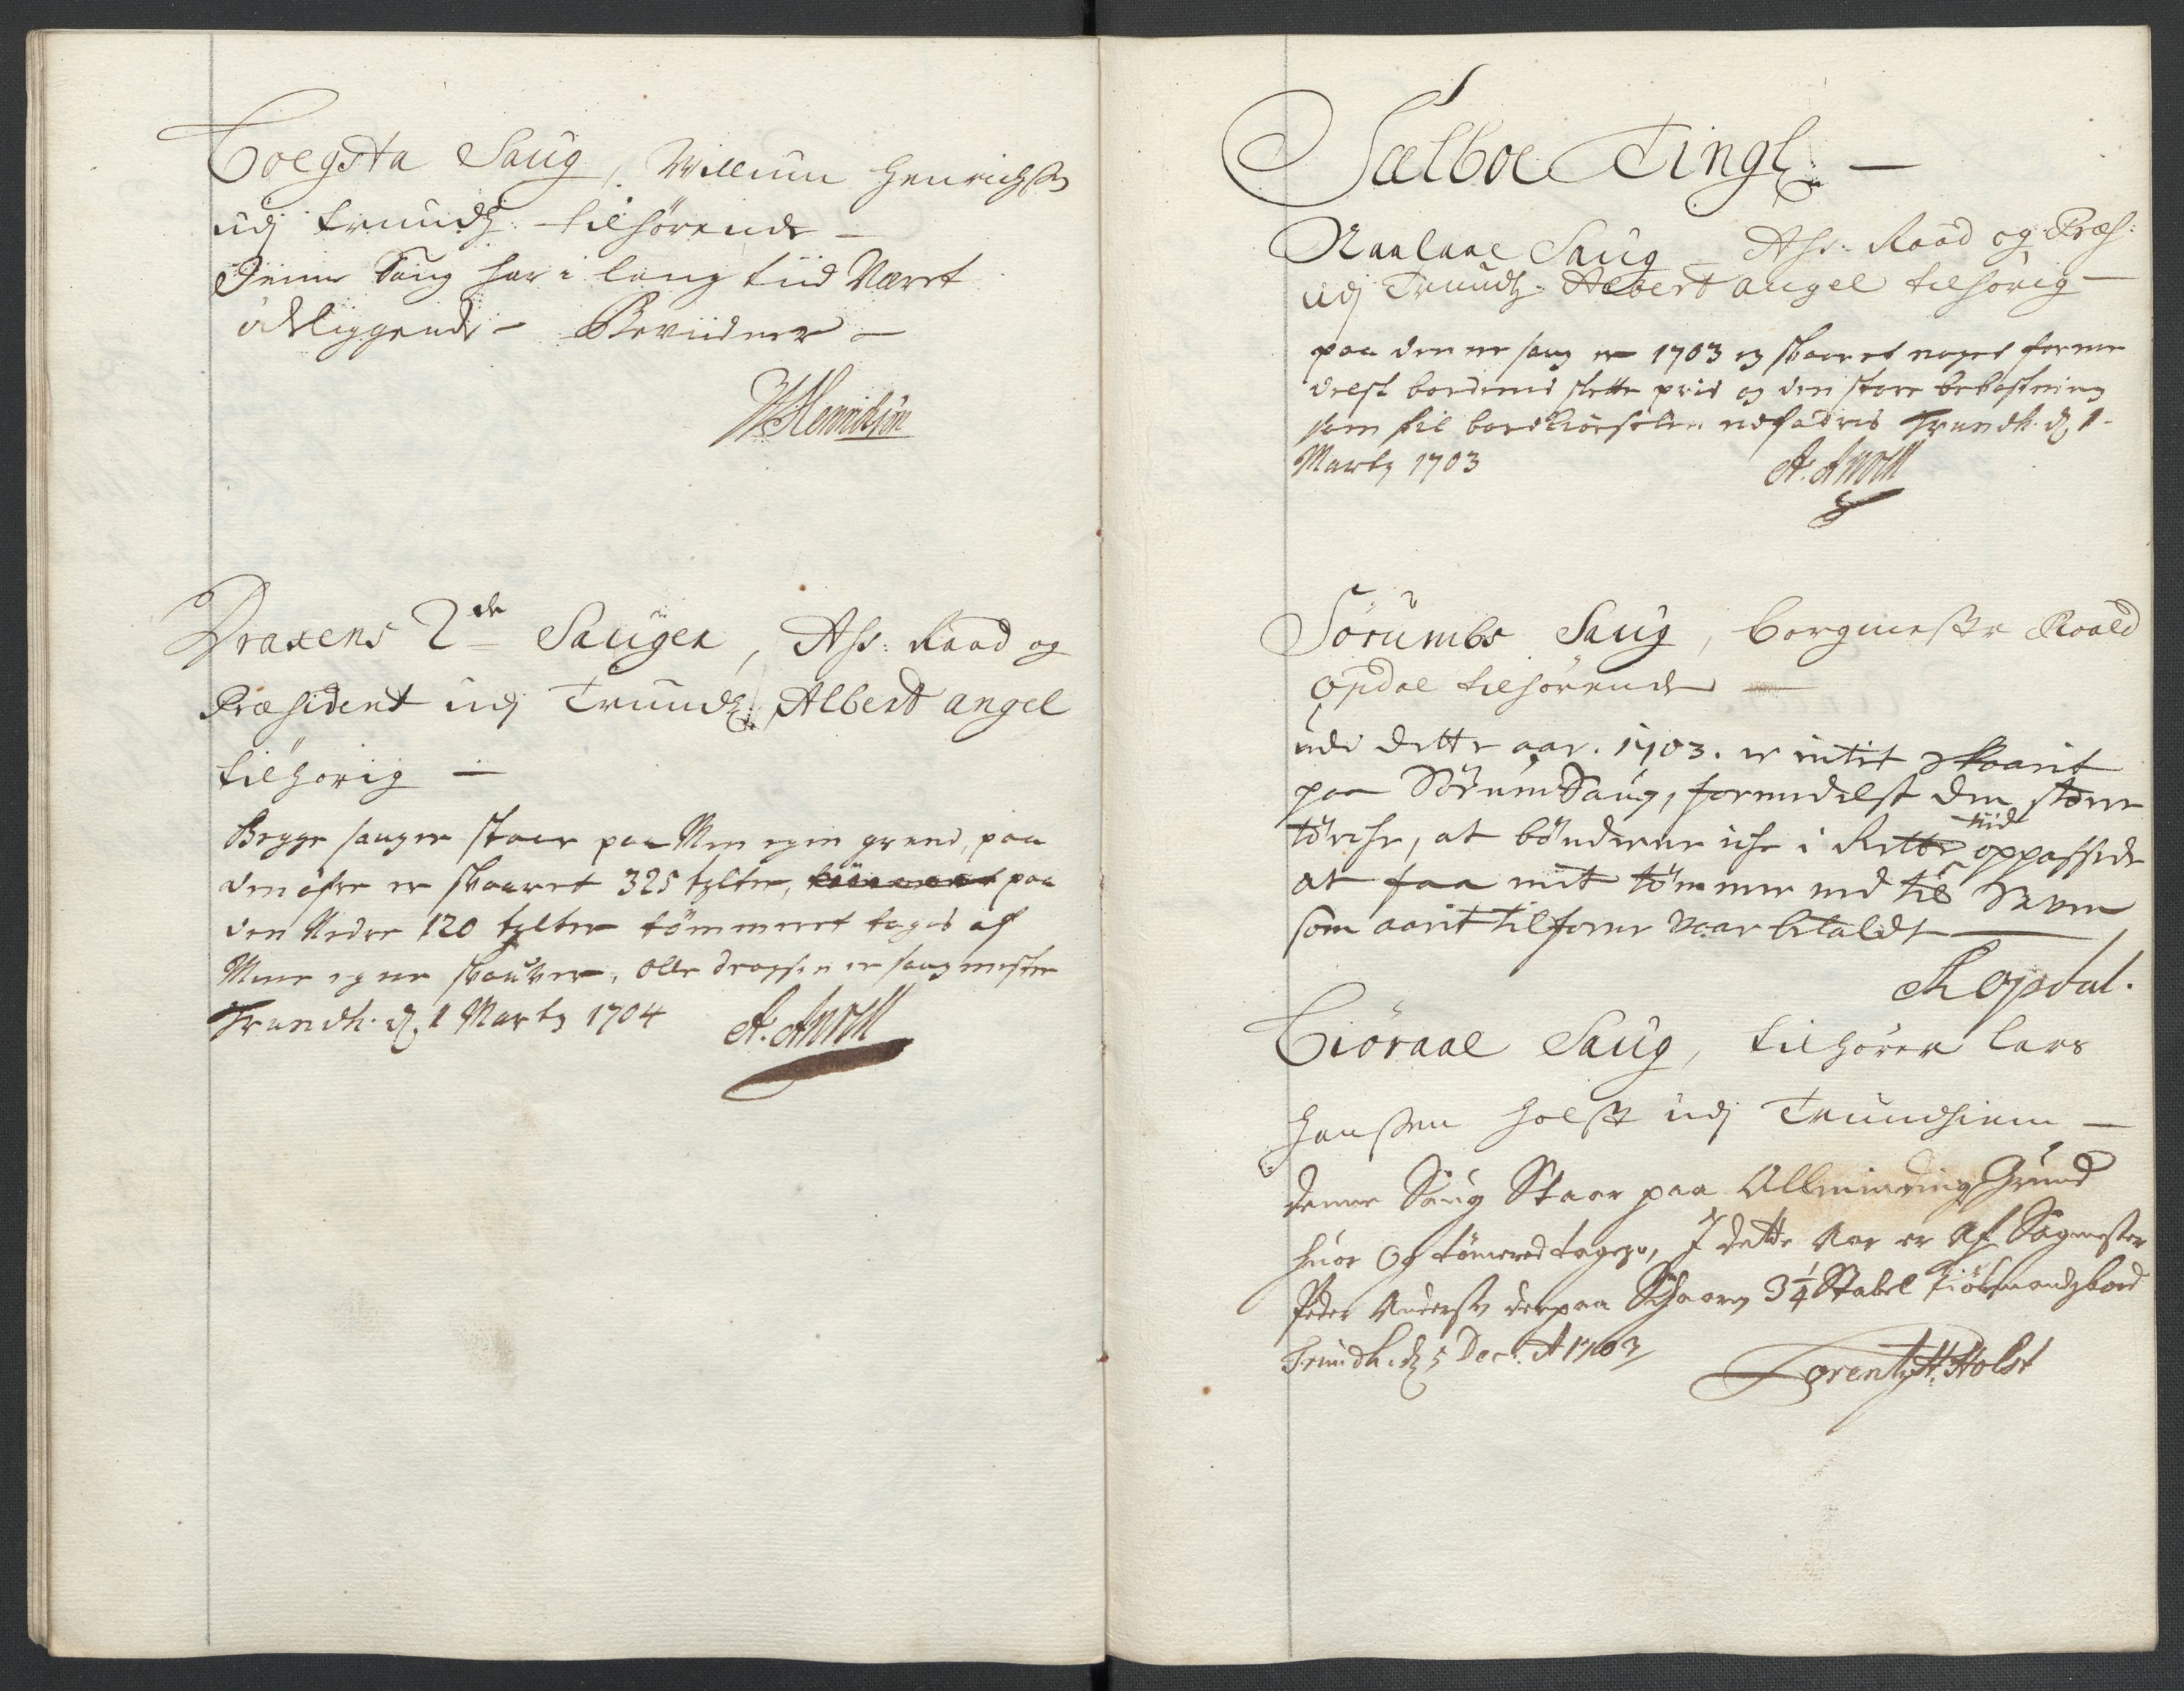 Willum Henrichsen
udj Trundh: tilhørende –
Denne Saug har i lang tiid Været
ödeliggende – Beviidner –
WHenrichsøn
Draxens 2de Sauger, Ass: Raad og
Præsident udj Trundh: Albert angel
tilhörig –
Begge sauger staar paa Min egen grund, paa
den öfre er skaaret 325 tylter, paa
den Nedre 120 tylter tömmeret tages af
Mine egne skouver, Olle dragsten er saugmester
Trundh. d. 1 Marty 1704 A. Angell
Sælboe Tingl: –
Saug – Ass: Raad og Præs:
udj Trundh: Albert angel tilhörig –
paa denne saug er 1703 ey skaaret noget forme
delst bordenis slette priis og den store bekostning
som til bordkiörselen udfodris Trundh. d. 1
Marty 1703 A. Angell
Sörumbs Saug, borgmester Roald
Opdal tilhörende –
udi dette aar. 1703. er intet skaarit
paa Sörum Saug, formedelst den store
törche, at bönderne iche i Rette tid oppassede
at faa mit tömmer ned til Elven
som aarit tilforne Vaar betaldt
R Opdal.
Saug, tilhører Lars
Hanssen Holst udj Trundhiem –
Denne Saug Staar paa Allminding Grund
huor Og tömered tages, J dette Aar er Af Sagmester
Peder Andersen derpaa Schaaren 3 1/4 Stabel Kiöbmandsbord
Trundh. d. 5 Dec. A 1703
Lorentz H. Holst